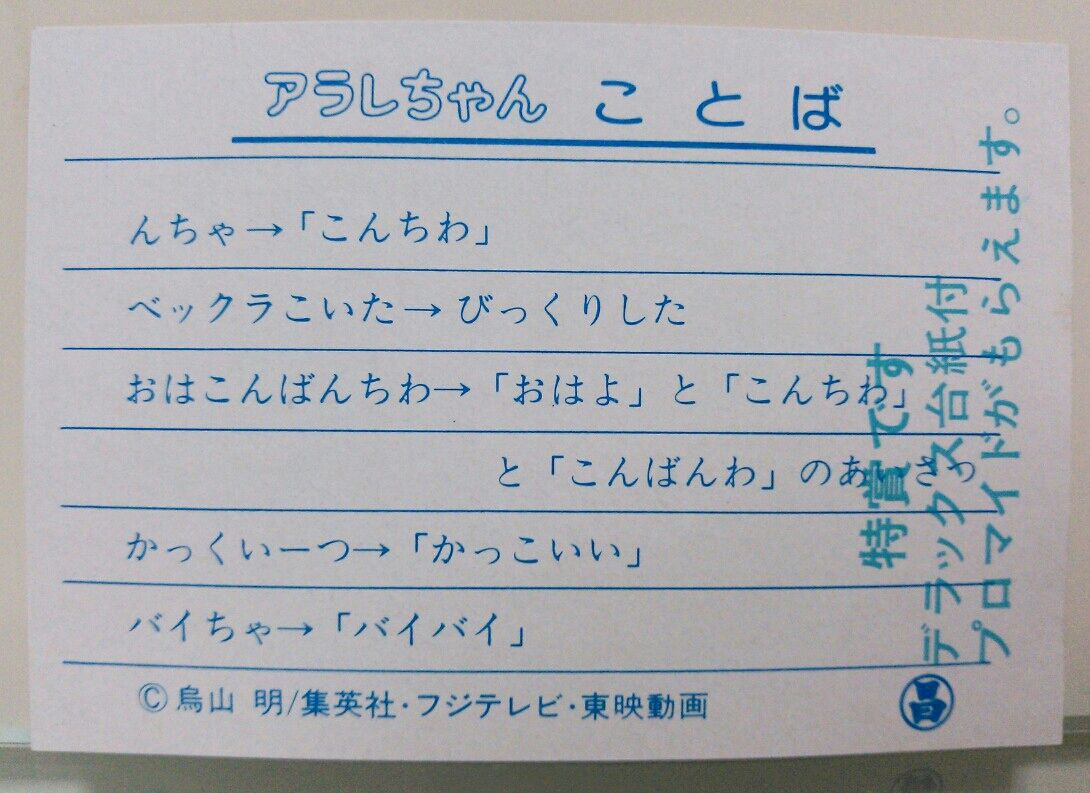 アラレちゃん ことば
んちゃ→「こんちわ」
ベックラこいた→びっくりした
おはこんばんちわ→「おはよ」と「こんちわ」
と「こんばんわ」のあいさつ
かっくいーつ→「かっこいい」
バイちゃ→「バイバイ」
©鳥山 明/集英社・フジテレビ・東映動画
特賞です
デラックス台紙付
プロマイドがもらえます。
昌